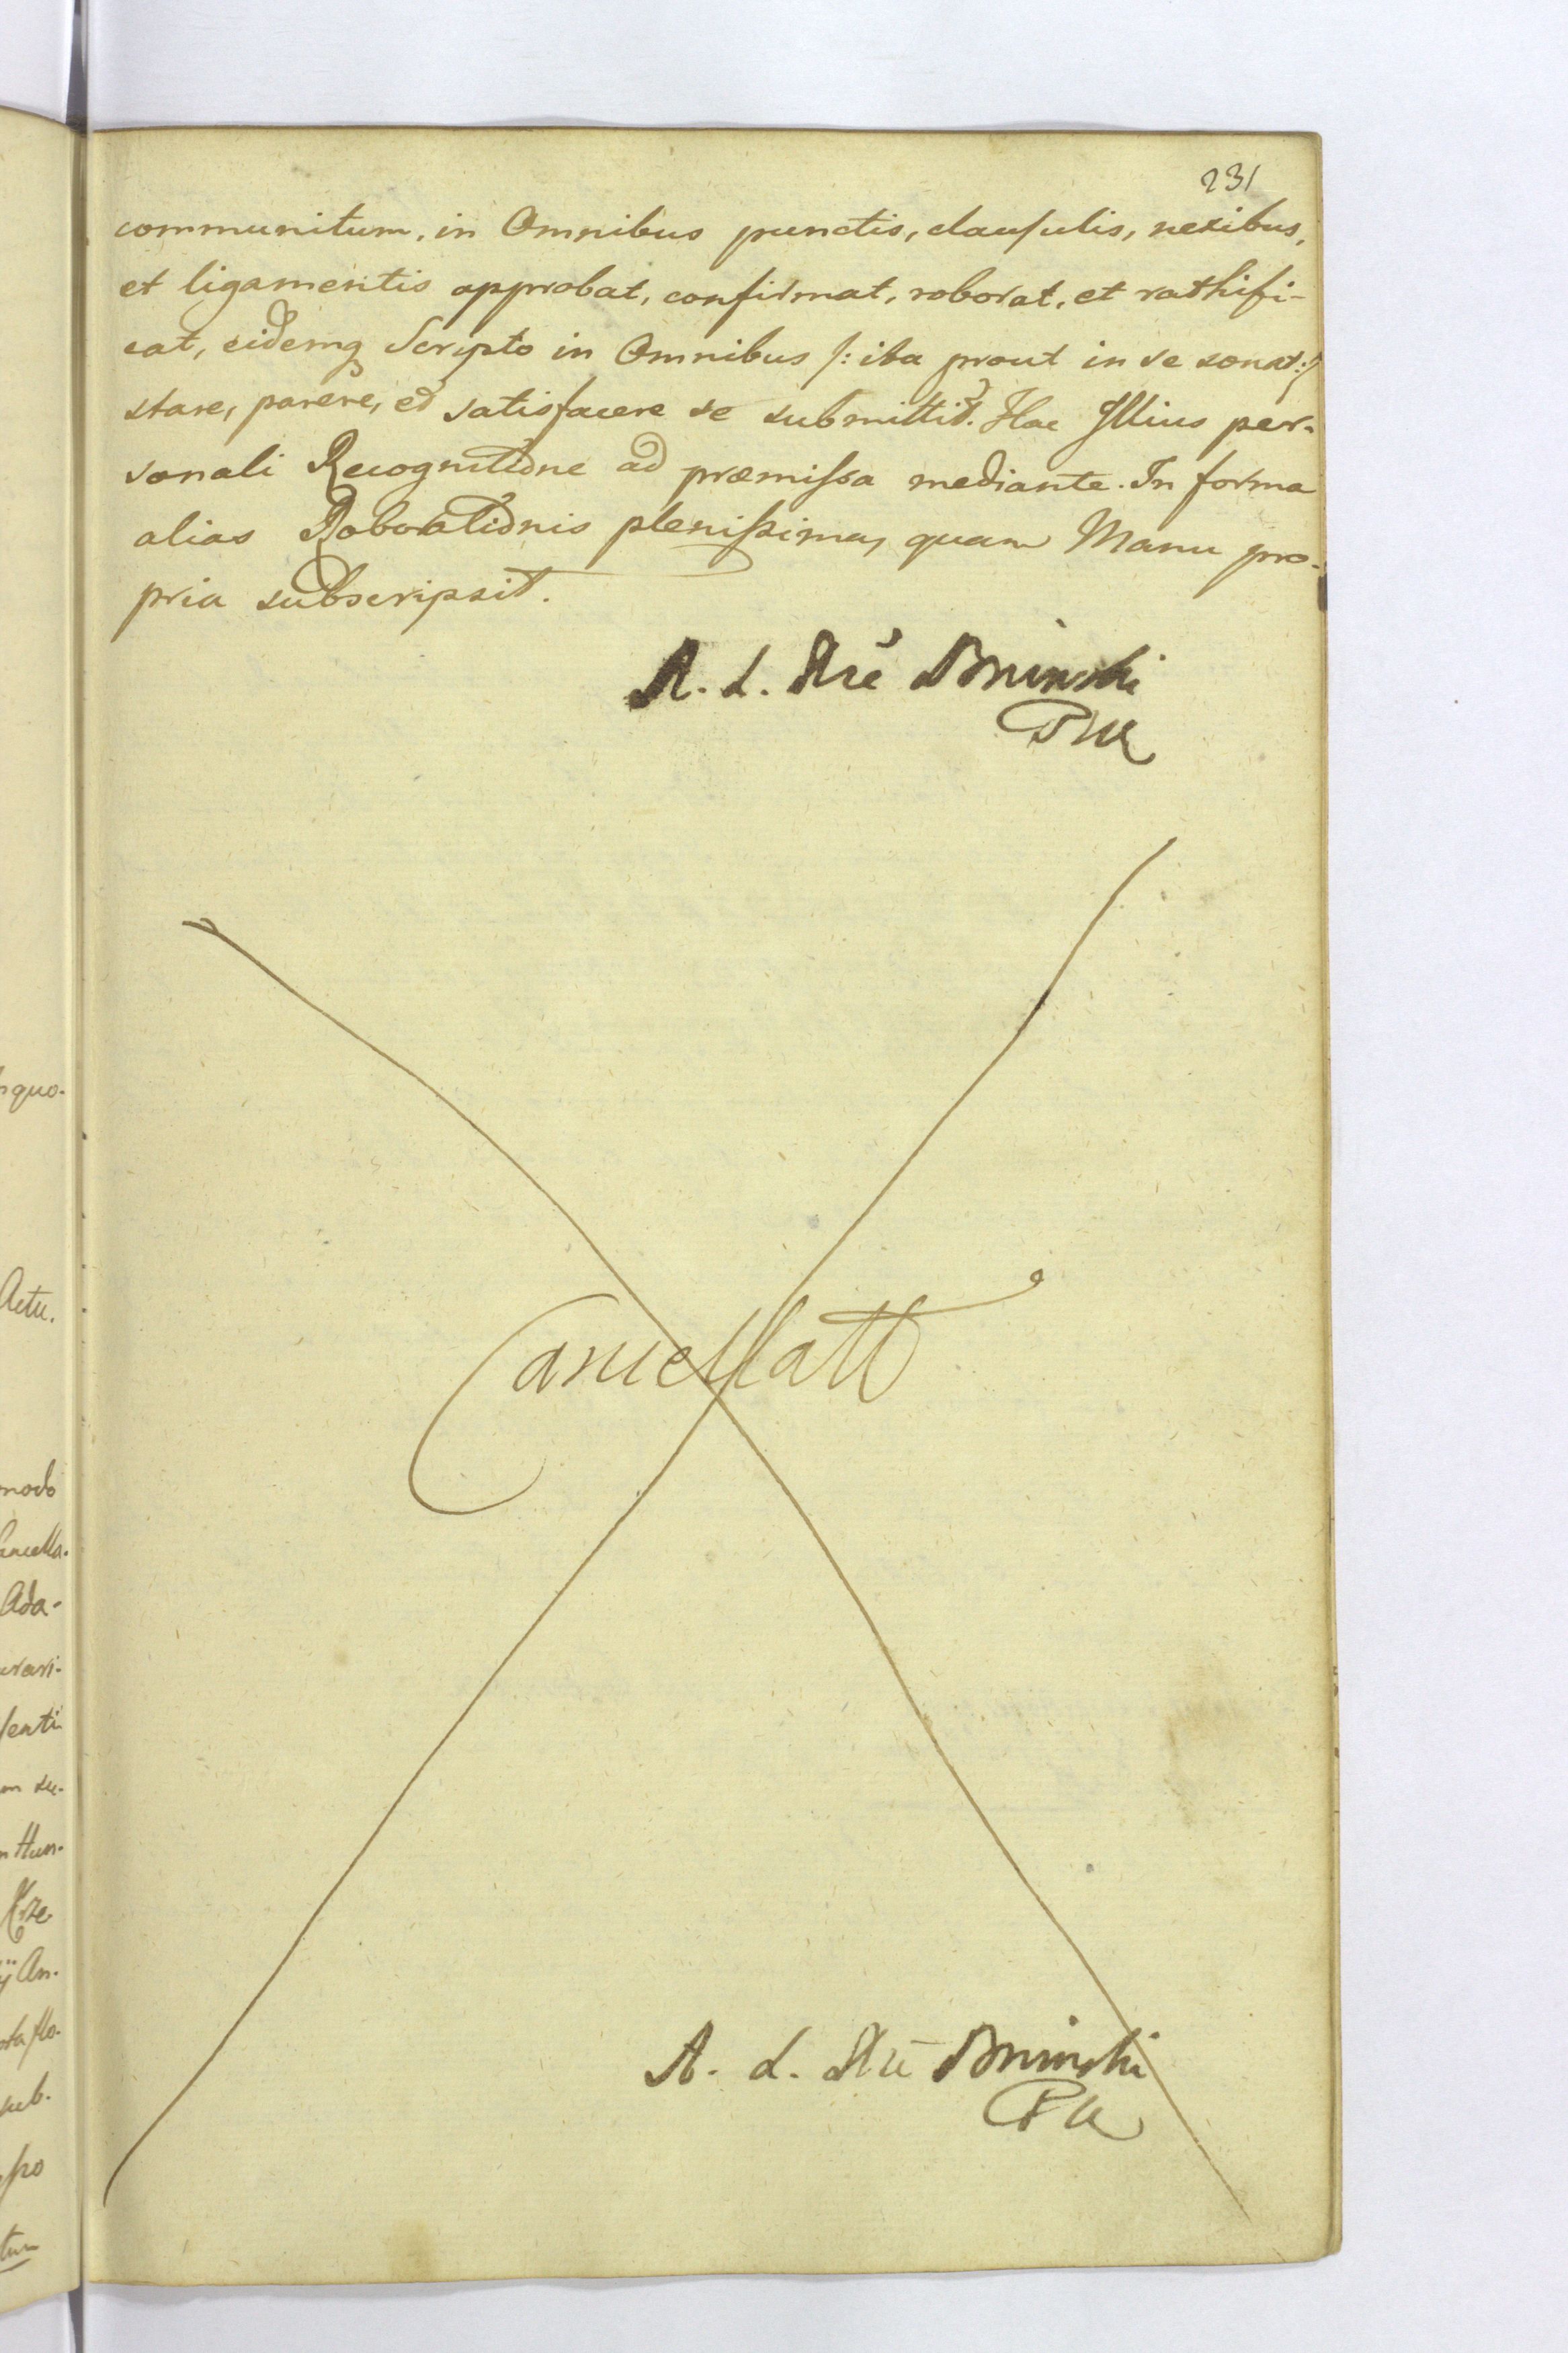 231
communitum, in Omnibus punctis, clausulis, nexibus,
et ligamentis approbat, confirmat, roborat, et rathifi-
cat, eidemq Scripto in Omnibus /: ita prout in se sonat :/
stare, parere, et satisfacere se submittit. Hac Illius per-
sonali Recognitione ad præmissa mediante. In forma
alias Roborationis plenissima, quam Manu pro-
pria subscripsit.
A. L. Bninski
Cancellatt
A. L. Bninski
quo-
Actu.
modo
Cancella-
Ada-